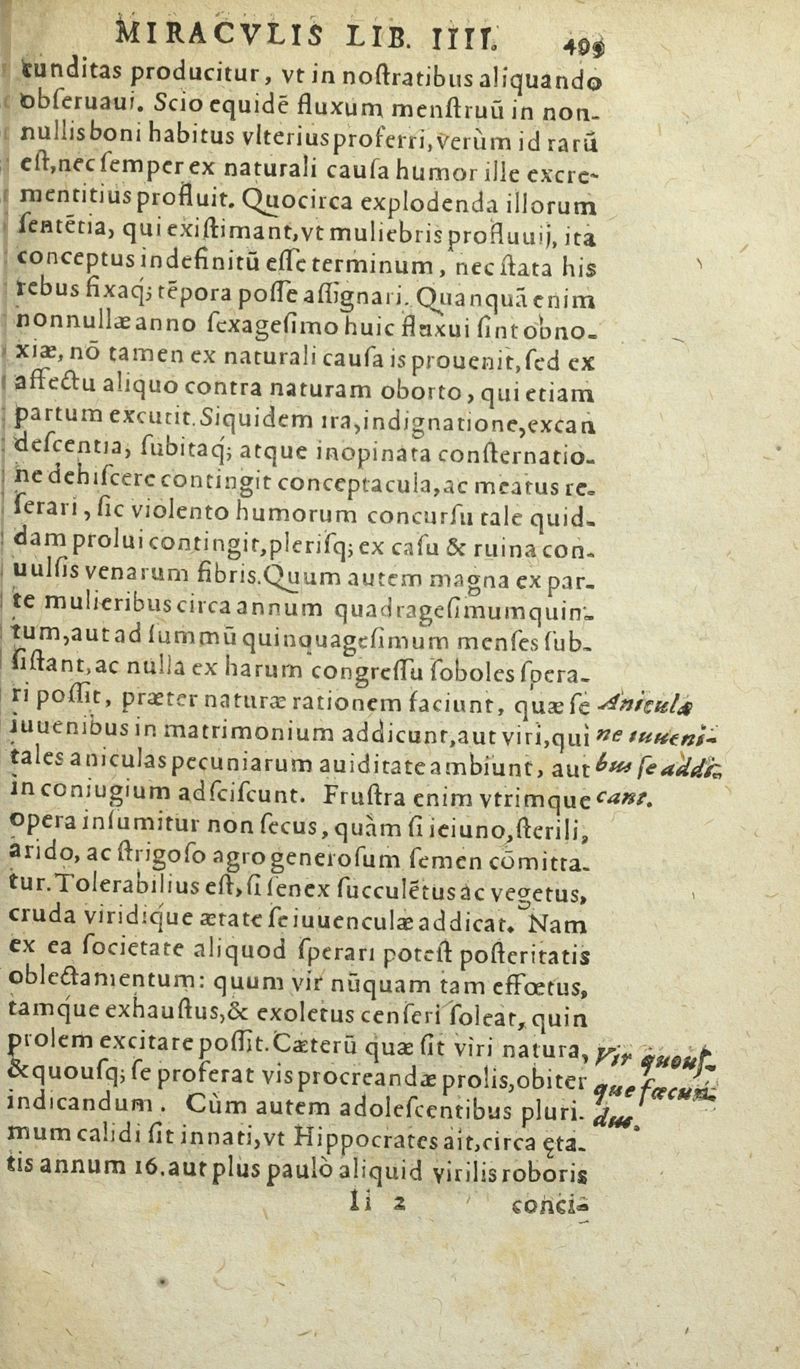 MIRACVLIS LIB. IIII. 499
cunditas producitur, vt in noſtratibus aliquando
obſeruaui. Scio equidē fluxum menſtruū in non-
nullis boni habitus vlterius proferri, verùm id rarū
eſt, nec ſemper ex naturali cauſa humor ille excre-
mentitius profluit. Quocirca explodenda illorum
ſentētia, qui exiſtimant, vt muliebris profluuij, ita
conceptus indefinitū eſſe terminum, nec ſtata his
rebus fixaq; tēpora poſſe aſſignari. Quanquā enim
nonnullæ anno ſexageſimo huic fluxui ſint obno-
xiæ, nō tamen ex naturali cauſa is prouenit, ſed ex
affectu aliquo contra naturam oborto, qui etiam
partum excutit. Siquidem ira, indignatione, excan
deſcentia, ſubitaq; atque inopinata conſternatio-
ne dehiſcere contingit conceptacula, ac meatus re-
ſerari, ſic violento humorum concurſu tale quid-
dam prolui contingit, pleriſq; ex caſu & ruina con-
uulſis venarum fibris. Quum autem magna ex par-
te mulieribus circa annum quadrageſimumquin-
tum, aut ad ſummū quinquageſimum menſes ſub-
ſiſtant, ac nulla ex harum congreſſu ſoboles ſpera-
ri poſſit, præter naturæ rationem faciunt, quæ ſe Anicula
iuuenibus in matrimonium addicunt, aut viri, qui ne iuueni-
tales aniculas pecuniarum auiditate ambiunt, aut bus ſe addi-
in coniugium adſciſcunt. Fruſtra enim vtrimque cant.
opera inſumitur non ſecus, quàm ſi ieiuno, ſterili,
arido, ac ſtrigoſo agro generoſum ſemen cōmitta-
tur. Tolerabilius eſt, ſi ſenex ſucculētus ac vegetus,
cruda viridique ætate ſe iuuenculæ addicat. Nam
ex ea ſocietate aliquod ſperari poteſt poſteritatis
oblectamentum: quum vir nūquam tam effœtus,
tamque exhauſtus, & exoletus cenſeri ſoleat, quin
prolem excitare poſſit. Cæterū quæ ſit viri natura, Vir quouſ-
& quouſq; ſe proferat vis procreandæ prolis, obiter que fœcun-
indicandum. Cùm autem adoleſcentibus pluri- dus.
mum calidi ſit innati, vt Hippocrates ait, circa ęta-
tis annum 16. aut plus paulò aliquid virilis roboris
Ii 2 conci-